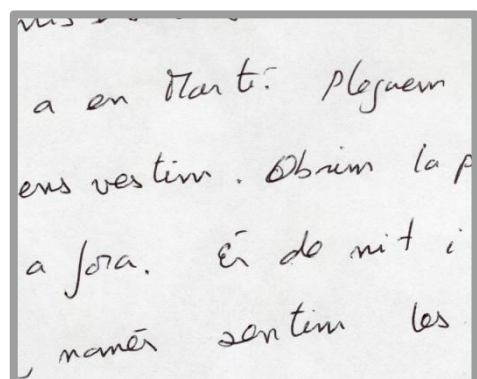 a en Martí. Pleguem
ens vestim. Obrim la p
a fora. És de nit i
, només sentim les